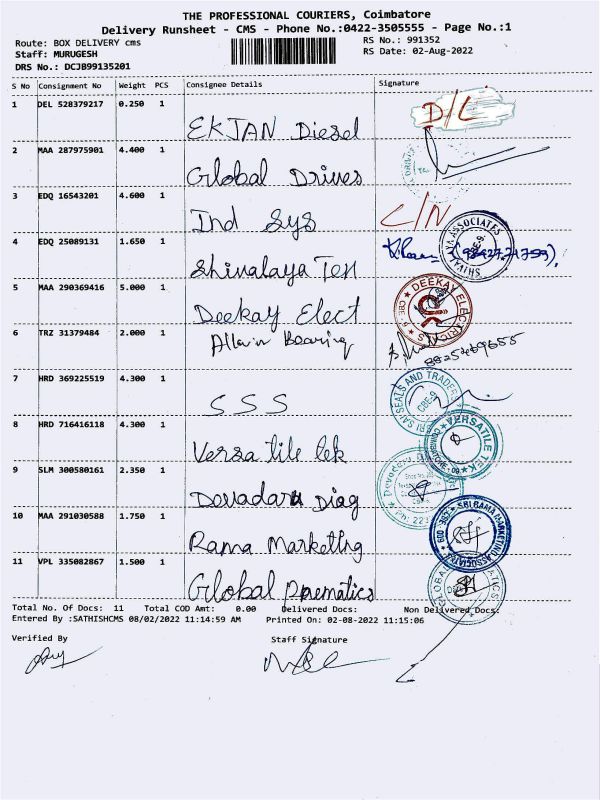 THE PROFESSIONAL COURIERS, Coimbatore
Delivery Runsheet - CMS - Phone No.:0422-3505555 - Page No.:1
Route: BOX DELIVERY cms RS No.: 991352
Staff: MURUGESH RS Date: 02-Aug-2022
DRS No.: DCJB99135201
S No Consignment No Weight PCS Consignee Details Signature
1 DEL 528379217 0.250 1 EKJAN Diesel D/L
2 MAA 287975901 4.400 1 Global Drives
3 EDQ 16543201 4.600 1 Ind Sys C/N
4 EDQ 25089131 1.650 1 Shivalaya Tex SHIVALAYA ASSOCIATES CBE-9.
5 MAA 290369416 5.000 1 Deekay Elect DEEKAY ELECTRICALS CBE - 9
6 TRZ 31379484 2.000 1 Allwin Bearing 8825469655
7 HRD 369225519 4.300 1 SSS SRI SAI SEALS AND TRADERS CBE-9
8 HRD 716416118 4.300 1 Versatile tek VERSATILE TEK COIMBATORE - 09
9 SLM 300580161 2.350 1 Devadaru Diag
10 MAA 291030588 1.750 1 Rama Marketing SRI RAMA MARKETING ASSOCIATES CBE - 009
11 VPL 335082867 1.500 1 Global Pnematics GLOBAL
Total No. Of Docs: 11 Total COD Amt: 0.00 Delivered Docs: Non Delivered Docs:
Entered By :SATHISHCMS 08/02/2022 11:14:59 AM Printed On: 02-08-2022 11:15:06
Verified By Staff Signature